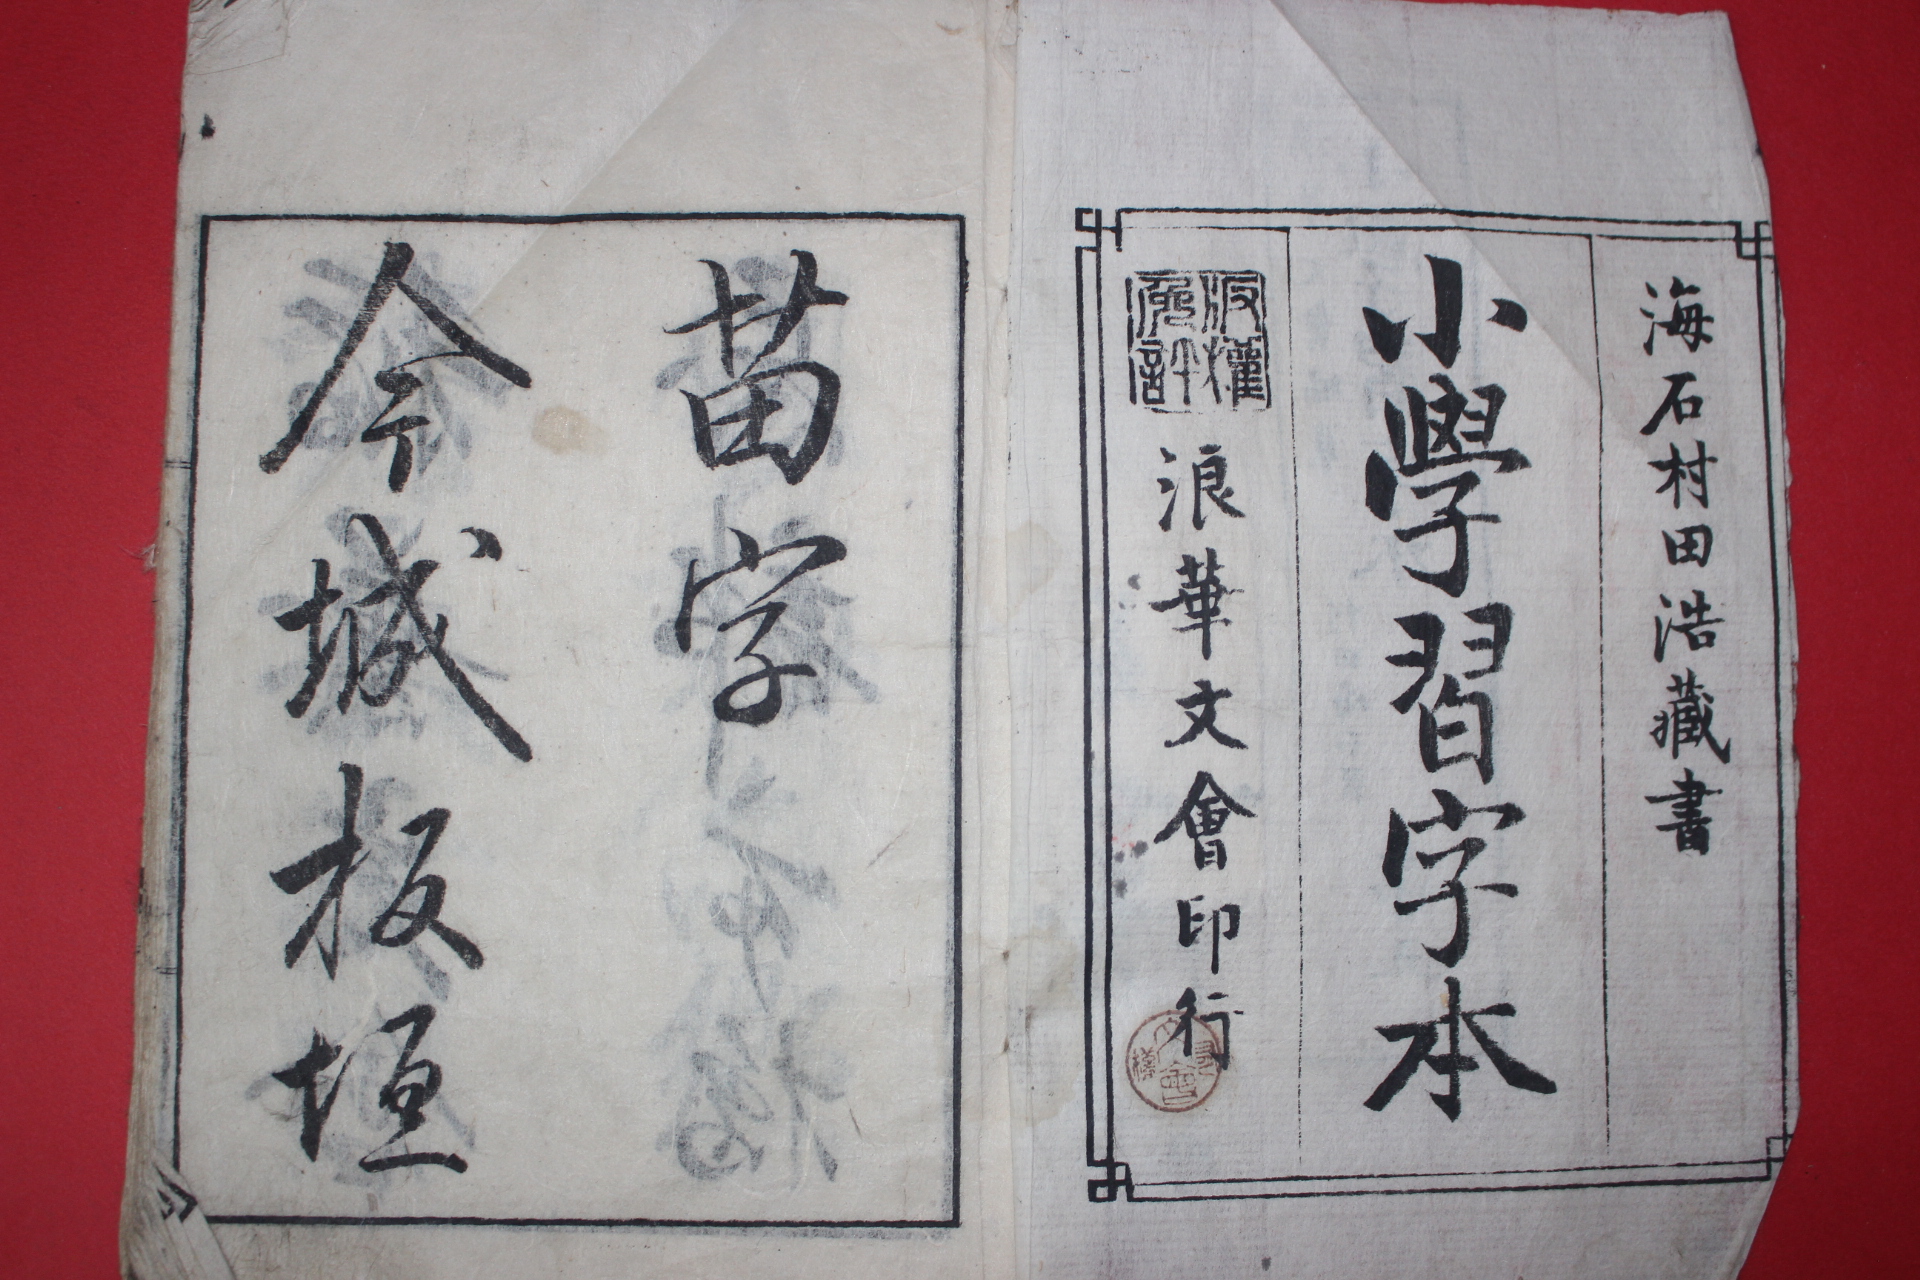 海石村田浩藏書
小學習字本
版權免許
浪華文會印行
文會
苗字
今城板垣